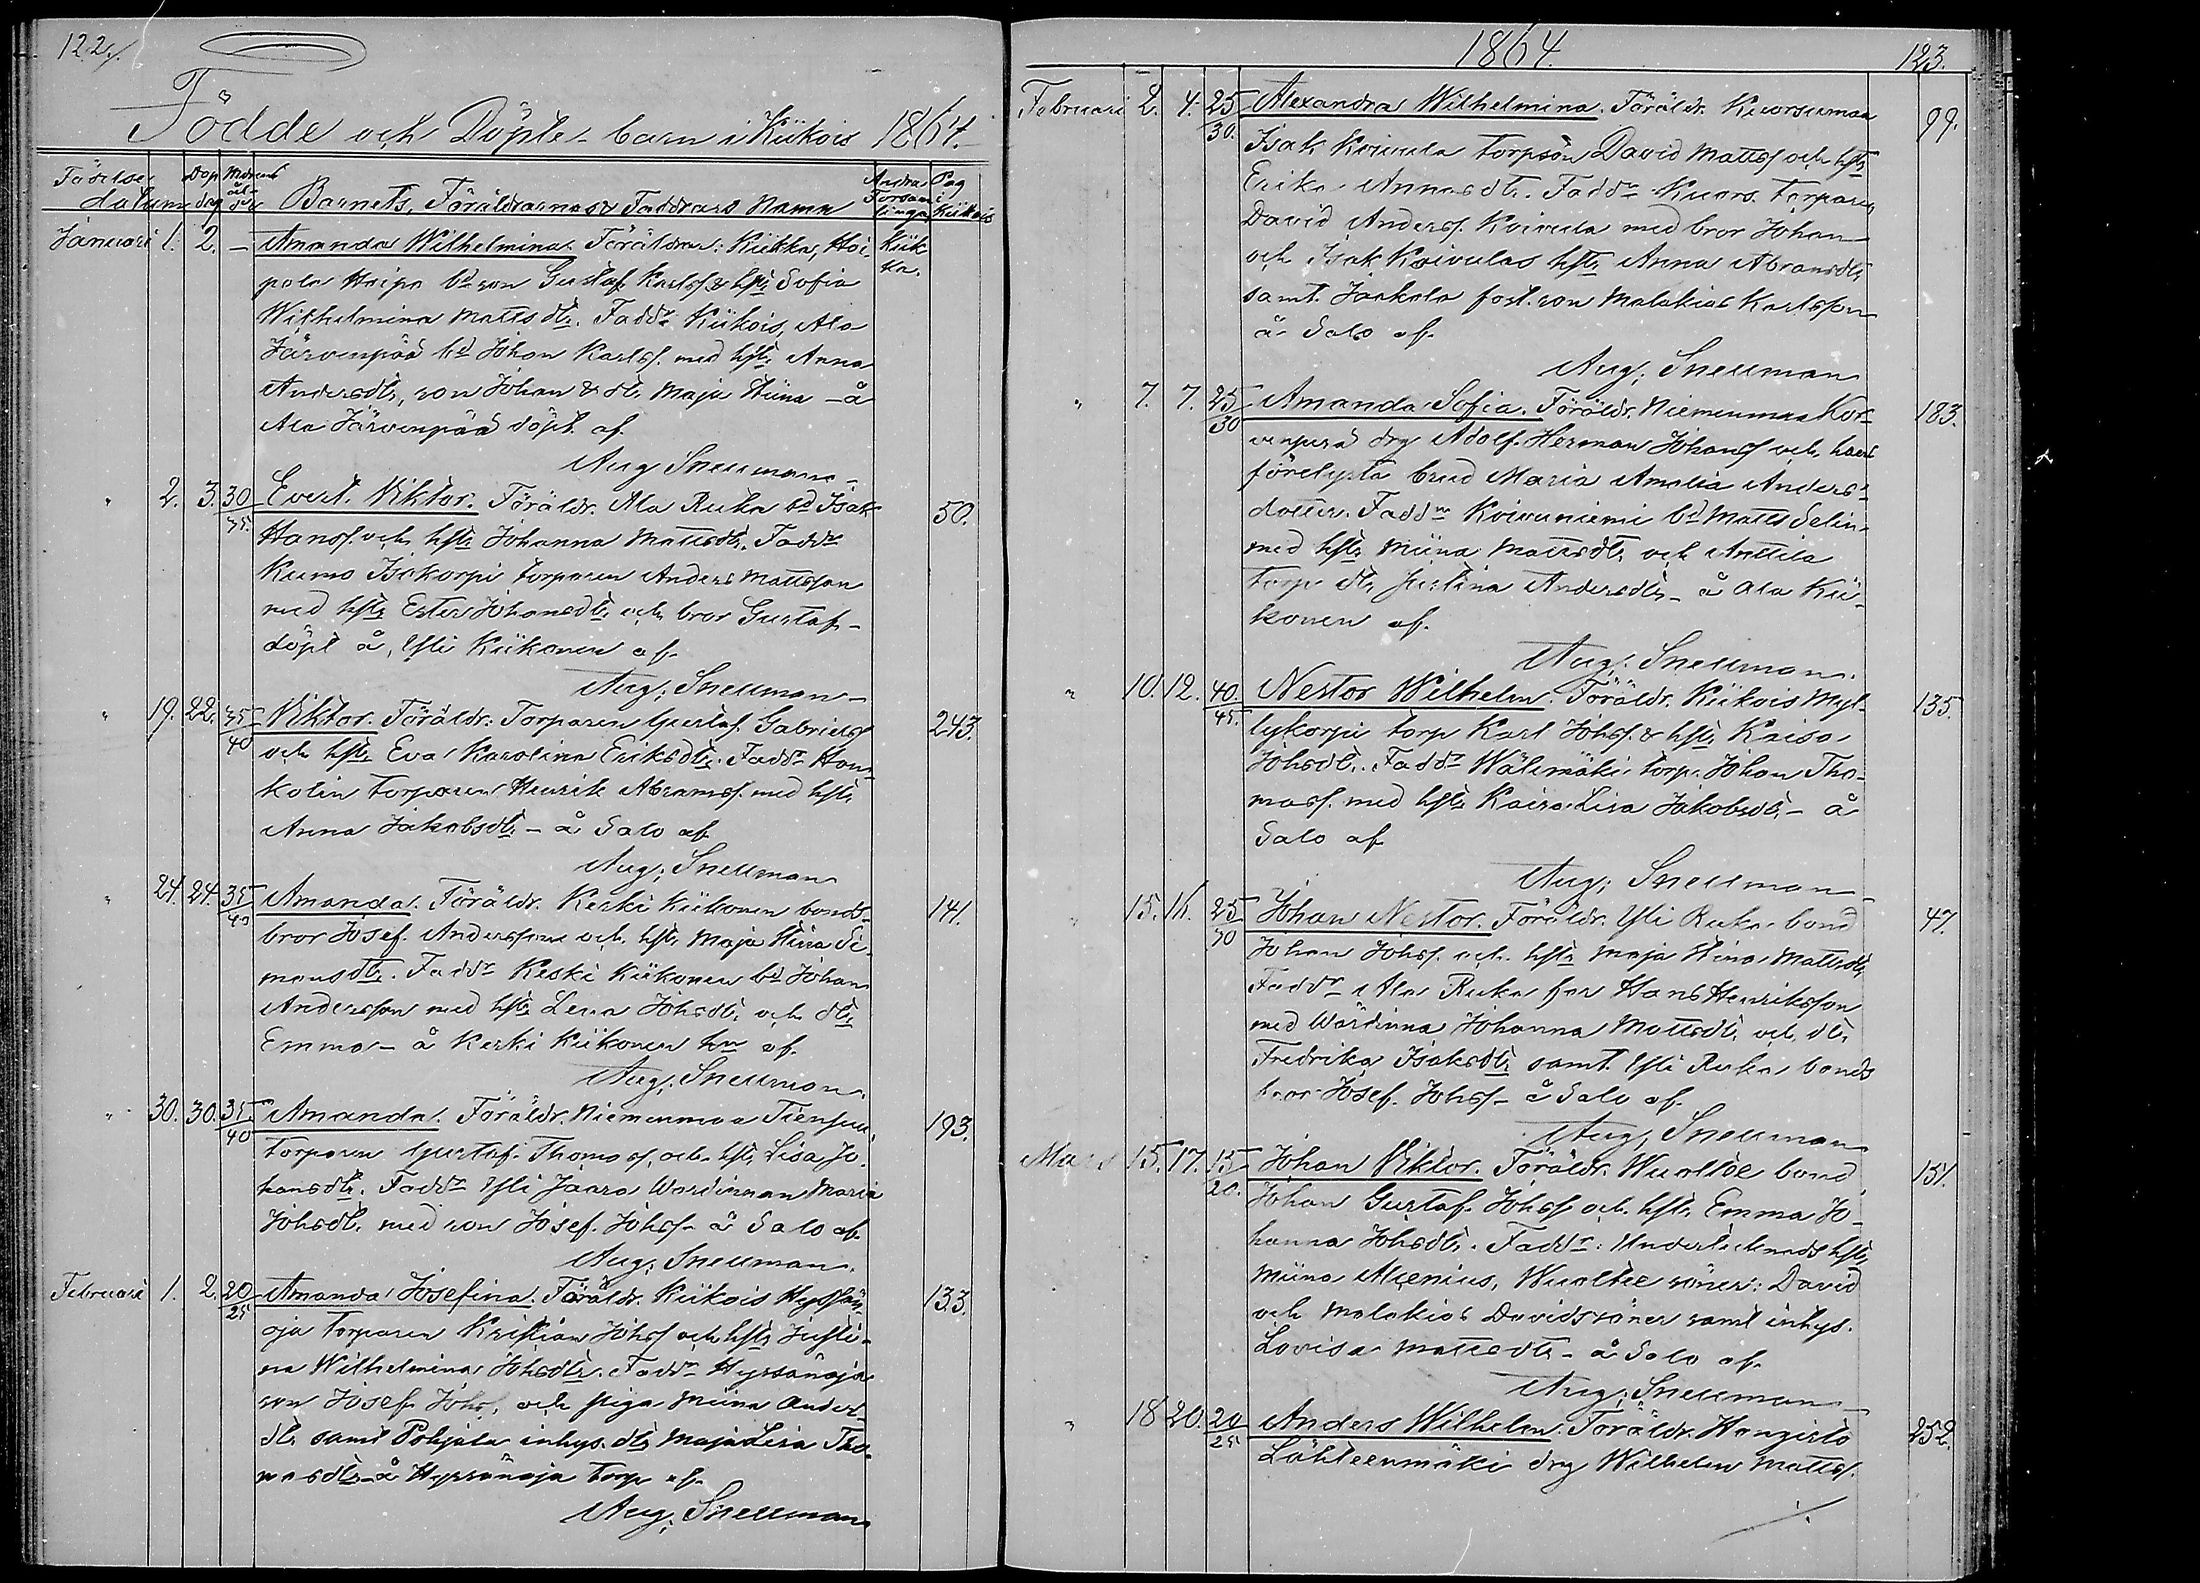 122.
Födde och Döpte barn i Kiikois 1864.
Födelse datum
Dop dag
Modrens ålder
Barnets, Föräldrarnas & Faddrars Namn
Andra Församlingar
Pag i Kiikois
Januari 1. 2. — Amanda Wilhelmina. Föräldrar: Kiikka, Hoi- Kiik-
pola Heipa bd son Gustaf Karlss. & hstr Sofia ka.
Wilhelmina Mattsdtr. Faddr Kiikois, Ala
Järvenpää bd Johan Karlss. med hstr Anna
Andersdtr, son Johan & dtr Maja Stina – å
Ala Järvenpää döpt af
Aug. Snellman
" 2. 3. 30/35. Evert Viktor. Föräldr. Ala Ruka bd Isak 50.
Hanss. och hstr Johanna Mattsdtr. Faddr
Kumo Isokorpi torparen Anders Mattsson
med hstr Ester Johansdtr och bror Gustaf –
döpt å Yli Kiikonen af
Aug. Snellman
" 19. 22. 35/40 Viktor. Föräldr: Torparen Gustaf Gabrielss 243.
och hstr Eva Karolina Eriksdtr. Faddr Hon-
kolin torparen Henrik Abramss. med hstr
Anna Jakobsdtr – å Salo af
Aug. Snellman
" 24. 24. 35/40 Amanda. Föräldr. Keski Kiikonen bonds- 141.
bror Josef Andersson och hstr Maja Stina Si-
monsdtr. Faddr Keski Kiikonen bd Johan
Andersson med hstr Lena Johsdtr och dtr
Emma – å Keski Kiikonen hn af
Aug. Snellman
" 30. 30. 35/40 Amanda. Föräldr. Niemenmaa Tiensuu 193.
torparen Gustaf Thomass. och hstr Lisa Jo-
hansdtr. Faddr Yli Jaara Wärdinnan Maria
Johsdtr med son Josef Johss – å Salo af
Aug. Snellman
Februari 1. 2. 20/25 Amanda Josefina. Föräldr. Kiikois Hyssän- 133.
oja torparen Kristian Johss och hstr Justi-
na Wilhelmina Johsdtr. Faddr Hyssänoja
son Josef Johss, och piga Miina Anders-
dtr samt Pohjala inhys. dtr Maja Lisa Tho-
masdtr – å Hyssänoja torp af
Aug. Snellman
1864. 123.
Februari 2. 4. 25/30. Alexandra Wilhelmina. Föräldr. Kuorsumaa 99.
Isak Koivula torpson David Mattss och hstr
Erika Annasdtr. Faddr Kuors. torparen
David Anderss. Koivula med bror Johan
och Isak Koivulas hstr Anna Abramsdtr
samt Jaakola fost. son Malakias Karlsson
å Salo af
Aug. Snellman
" 7. 7. 25/30 Amanda Sofia. Föräldr. Niemenmaa Kor-
183.
venperä drg Adolf Herman Johanss och hans
förelysta brud Maria Amalia Anders-
dotter. Faddr Koivuniemi bd Matts Selin
med hstr Miina Mattsdtr och Anttila
torp dtr Justina Andersdtr – å Ala Kii-
konen af
Aug. Snellman
" 10. 12. 40./45. Nestor Wilhelm. Föräldr. Kiikois Myl- 135.
lykorpi torp Karl Johss. & hstr Kaisa
Johsdtr. Faddr Wälimäki torp. Johan Tho-
mass. med hstr Kaisa Lisa Jakobsdtr – å
Salo af
Aug. Snellman
" 15. 16. 25/30 Johan Nestor. Föräldr. Yli Ruka bond 47.
Johan Johss. och hstr Maja Stina Mattsdtr
Faddr Ala Ruka far Hans Henriksson
med Wärdinna Johanna Mattsdtr och dtr
Fredrika Isaksdtr samt Yli Ruka bonds
bror Josef Johss – å Salo af
Aug. Snellman
Mars 15. 17. 15/20. Johan Viktor. Föräldr. Wualtee bond 151.
Johan Gustaf Johss och hstr Emma Jo-
hanna Johsdtr. Faddr: Undertecknads hstr
Miina Alcenius, Wualtee söner: David
och Malakias Davidssöner samt inhys.
Lovisa Mattsdtr – å Salo af
Aug. Snellman
" 18 20. 20/25 Anders Wilhelm. Föräldr. Hangisto 252.
Lähteenmäki drg Wilhelm Mattss.